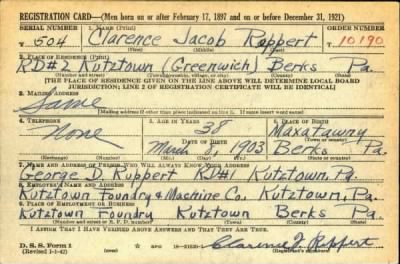 REGISTRATION CARD—(Men born on or after February 17, 1897 and on or before December 31, 1921)
SERIAL NUMBER 1. NAME (Print) ORDER NUMBER
T 504 Clarence Jacob Ruppert T 10190
(First) (Middle) (Last)
2. PLACE OF RESIDENCE (Print)
RD#2 Kutztown (Greenwich) Berks Pa.
(Number and street) (Town, township, village, or city) (County) (State)
[THE PLACE OF RESIDENCE GIVEN ON THE LINE ABOVE WILL DETERMINE LOCAL BOARD
JURISDICTION; LINE 2 OF REGISTRATION CERTIFICATE WILL BE IDENTICAL]
3. MAILING ADDRESS
Same
[Mailing address if other than place indicated on line 2. If same insert word same]
4. TELEPHONE 5. AGE IN YEARS 6. PLACE OF BIRTH
None 38 Maxataway
DATE OF BIRTH (Town or county)
March 2, 1903 Berks Pa.
(Exchange) (Number) (Mo.) (Day) (Yr.) (State or country)
7. NAME AND ADDRESS OF PERSON WHO WILL ALWAYS KNOW YOUR ADDRESS
George D. Ruppert RD#1 Kutztown, Pa.
8. EMPLOYER'S NAME AND ADDRESS
Kutztown Foundry & Machine Co. Kutztown, Pa.
9. PLACE OF EMPLOYMENT OR BUSINESS
Kutztown Foundry Kutztown Berks Pa.
(Number and street or R. F. D. number) (Town) (County) (State)
I AFFIRM THAT I HAVE VERIFIED ABOVE ANSWERS AND THAT THEY ARE TRUE.
D. S. S. Form 1
(Revised 1-1-42) Clarence J. Ruppert